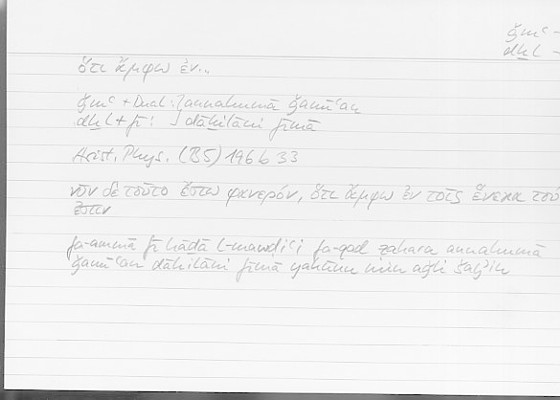 ǧmʿ –
dḫl –
ὅτι ἄμφω ἐν...
ǧmʿ + Dual: } annahumā ǧamīʿan
dḫl + fī: } dāḫilāni fīmā
Arist. Phys. (B5) 196b 33
νῦν δὲ τοῦτο ἔστω φανερόν, ὅτι ἄμφω ἐν τοῖς ἕνεκά του
ἐστιν
fa-ammā fī hāḏā l-mawḍiʿi fa-qad ẓahara annahumā
ǧamīʿan dāḫilāni fīmā yakūnu min aǧli šayʾin